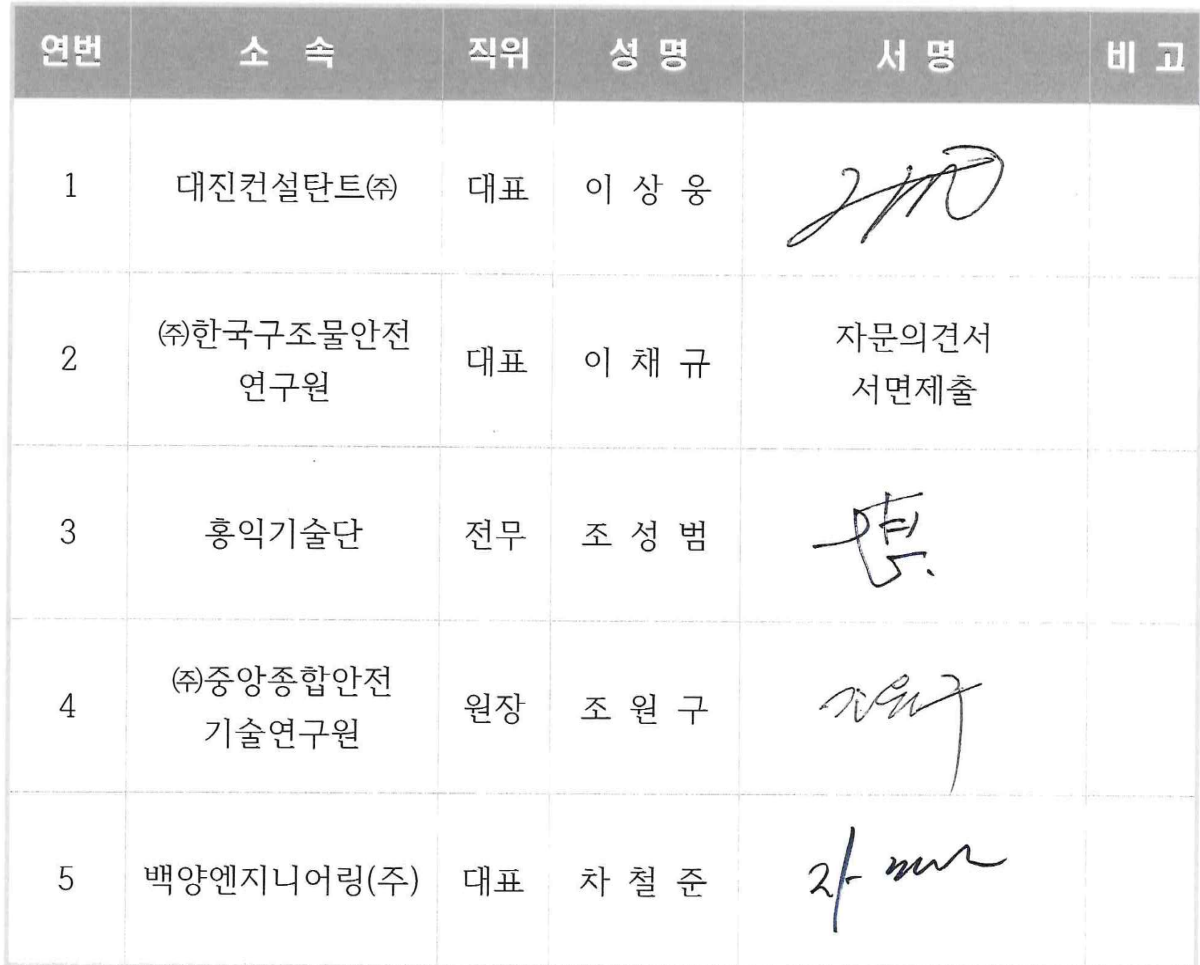 연번 소 속 직위 성 명 서 명 비 고
1 대진컨설탄트㈜ 대표 이 상 웅
2 ㈜한국구조물안전 연구원 대표 이 채 규 자문의견서 서면제출
3 홍익기술단 전무 조 성 범
4 ㈜중앙종합안전 기술연구원 원장 조 원 구 조원구
5 백양엔지니어링(주) 대표 차 철 준